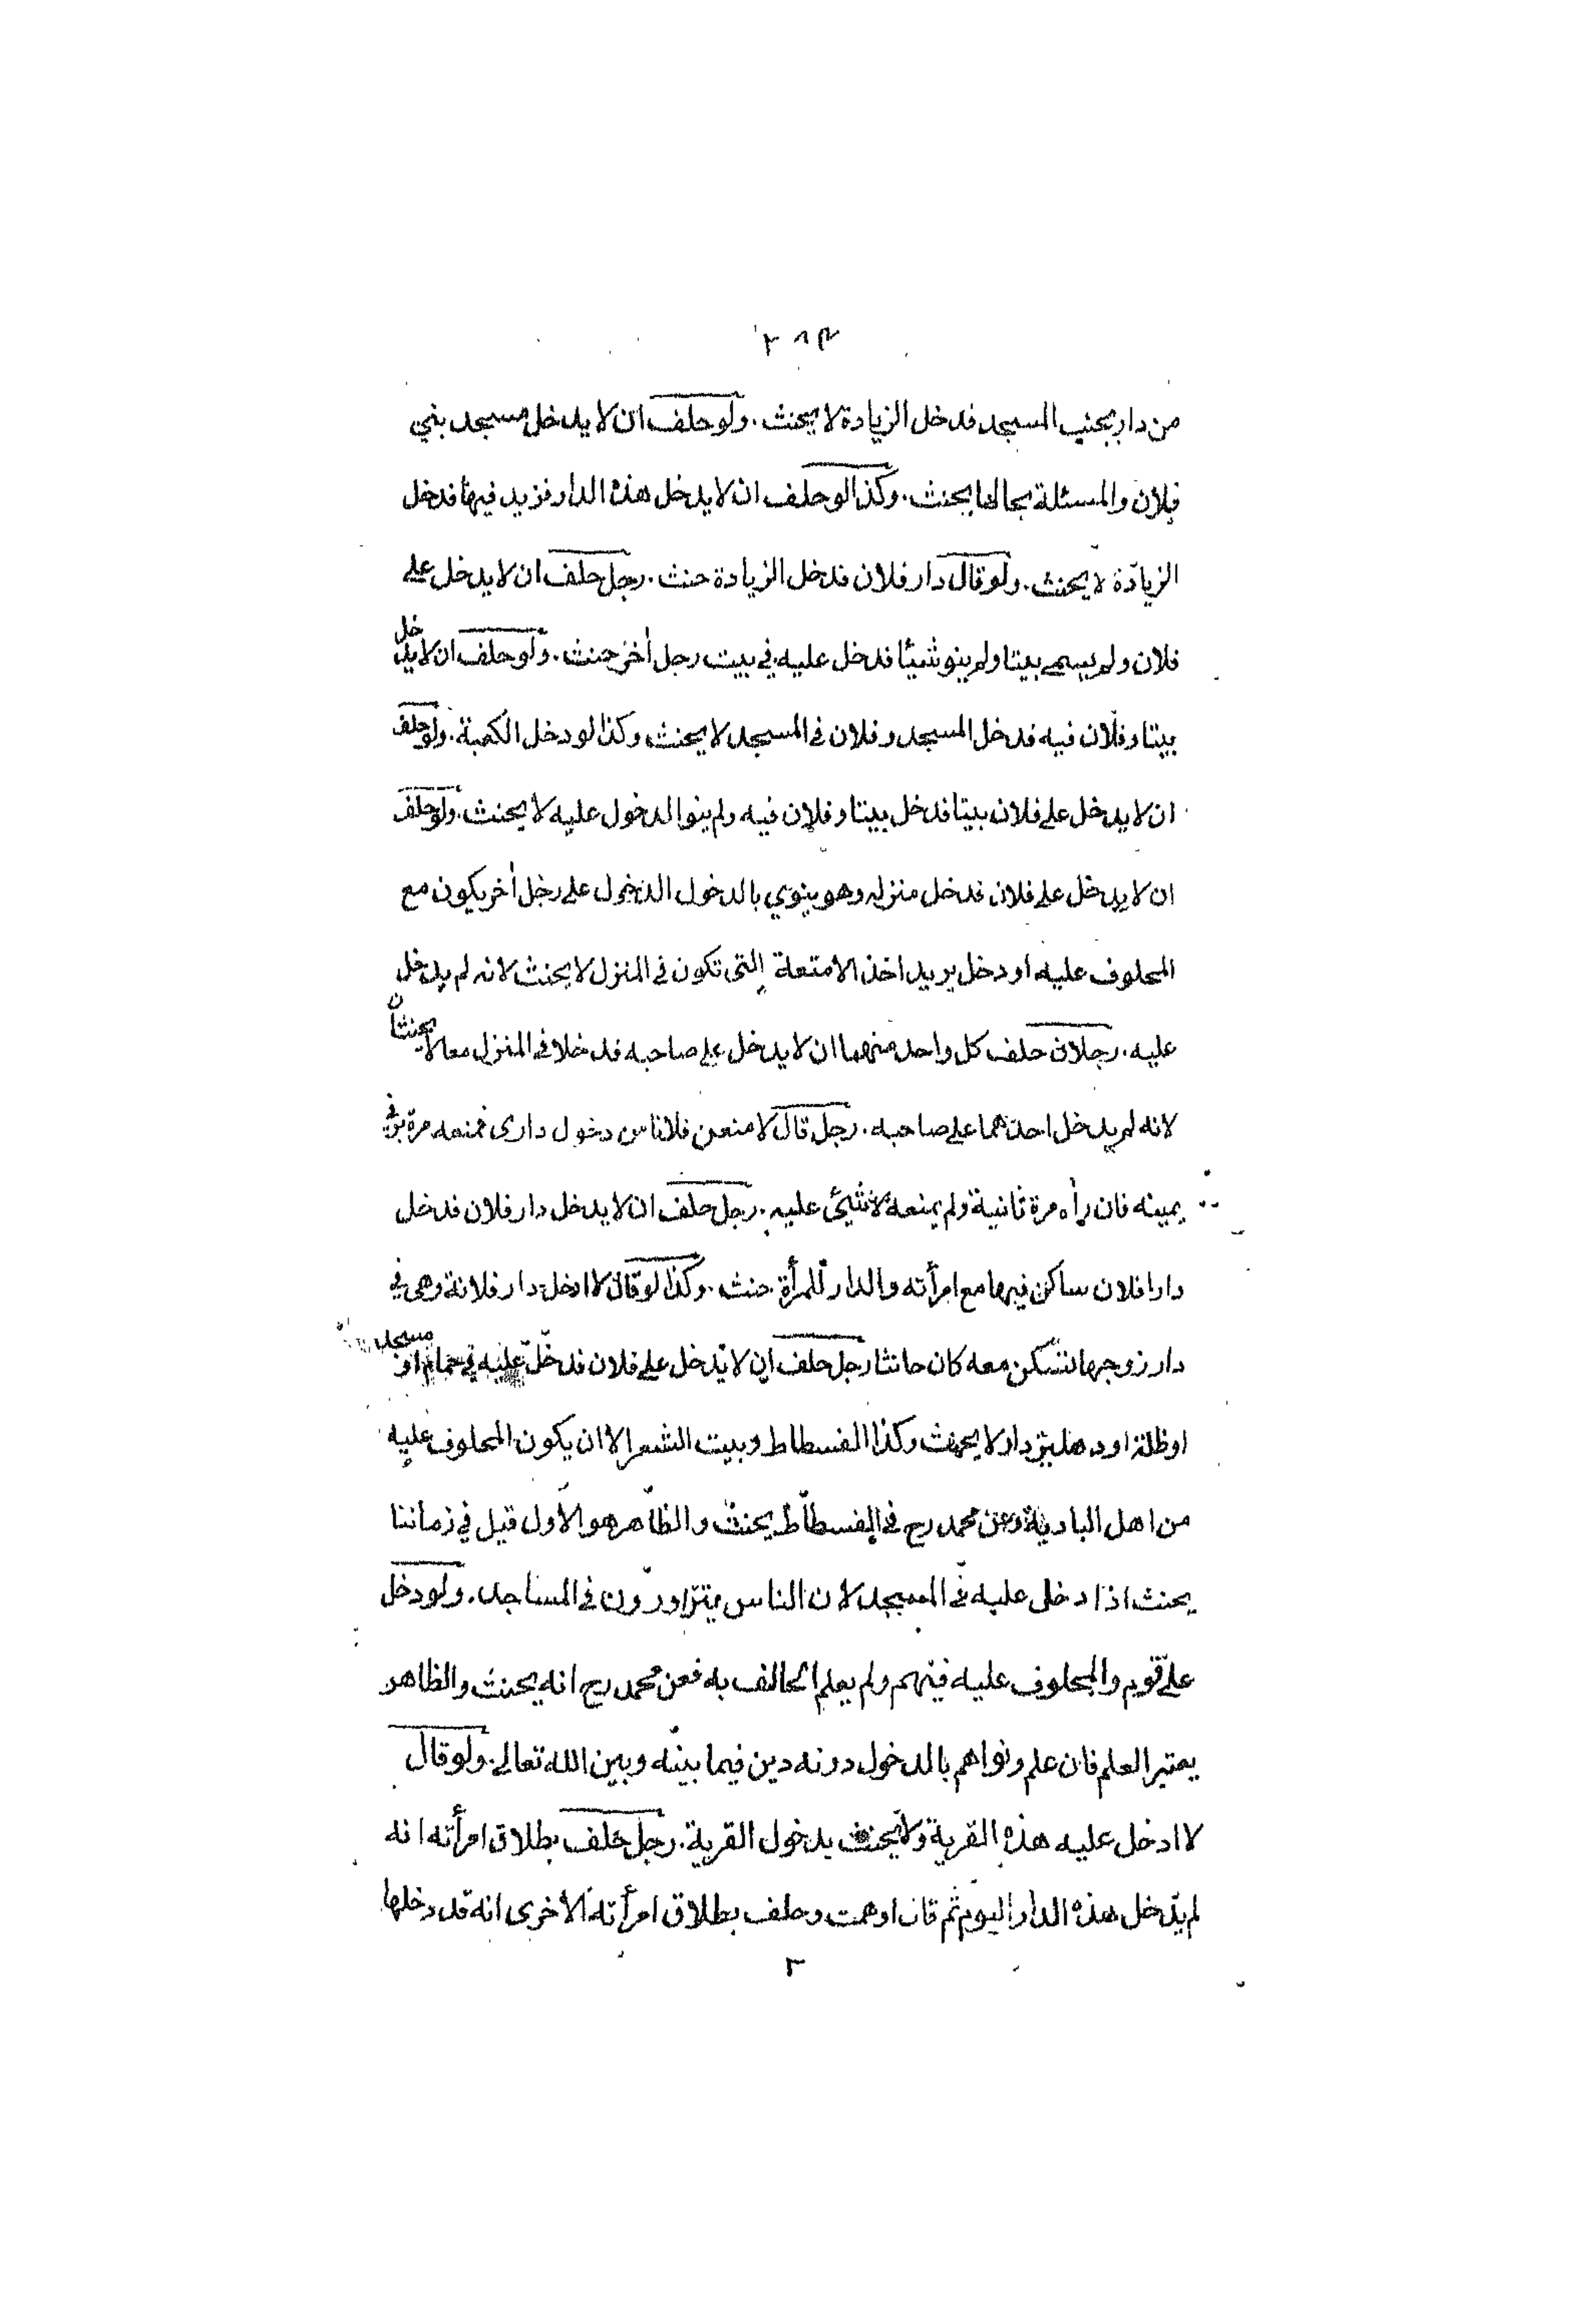 ٢٨٣
من دار بجنب المسجد فدخل الزيادة لا يحنث. ولو حلف ان لا يدخل مسجد بني
فلان والمسئلة بحالها يحنث. وكذا لو حلف ان لا يدخل هذه الدار فزيد فيها فدخل
الزيادة لا يحنث. ولو قال دار فلان فدخل الزيادة حنث. رجل حلف ان لا يدخل على
فلان ولم يسم بيتا ولم ينو شيئا فدخل عليه في بيت رجل أخر حنث. ولو حلف ان لا يدخل
بيتا وفلان فيه فدخل المسجد وفلان في المسجد لا يحنث وكذا لو دخل الكعبة. ولو حلف
ان لا يدخل على فلان بيتا فدخل بيتا وفلان فيه ولم ينو الدخول عليه لا يحنث. ولو حلف
ان لا يدخل على فلان فدخل منزله وهو ينوي بالدخول الدخول على رجل أخر يكون مع
المحلوف عليه او دخل يريد اخذ الامتعة التى تكون فى المنزل لا يحنث لانه لم يدخل
عليه. رجلان حلف كل واحد منهما ان لا يدخل على صاحبه فدخلا فى المنزل معا لا يحنثان
لانه لم يدخل احدهما على صاحبه. رجل قال لامنعن فلانا من دخول دارى فمنعه مرة بر في
يمينه فان رأه مرة ثانية ولم يمنعه لا شيئ عليه. رجل حلف ان لا يدخل دار فلان فدخل
دارا فلان ساكن فيها مع امرأته والدار للمرأة حنث. وكذا لو قال لا ادخل دار فلانة وهى في
دار زوجها تسكن معه كان حانثا رجل حلف ان لا يدخل على فلان فدخل عليه في حمام او مسجد
او ظلة او دهليز دار لا يحنث وكذا الفسطاط وبيت الشعر الا ان يكون المحلوف عليه
من اهل البادية وعن محمد رح فى الفسطاط يحنث والظاهر هو الاول قيل في زماننا
يحنث اذا دخل عليه في المسجد لان الناس يتزاورون فى المساجد. ولو دخل
على قوم والمحلوف عليه فيهم ولم يعلم الحالف به فعن محمد رح انه يحنث والظاهر
يعتبر العلم فان علم ونواهم بالدخول دونه دين فيما بينه وبين الله تعالى. ولو قال
لا ادخل عليه هذه القرية ولا يحنث بدخول القرية. رجل حلف بطلاق امرأته انه
لم يدخل هذه الدار اليوم ثم قال اوهمت وحلف بطلاق امرأته الاخرى انه قد دخلها